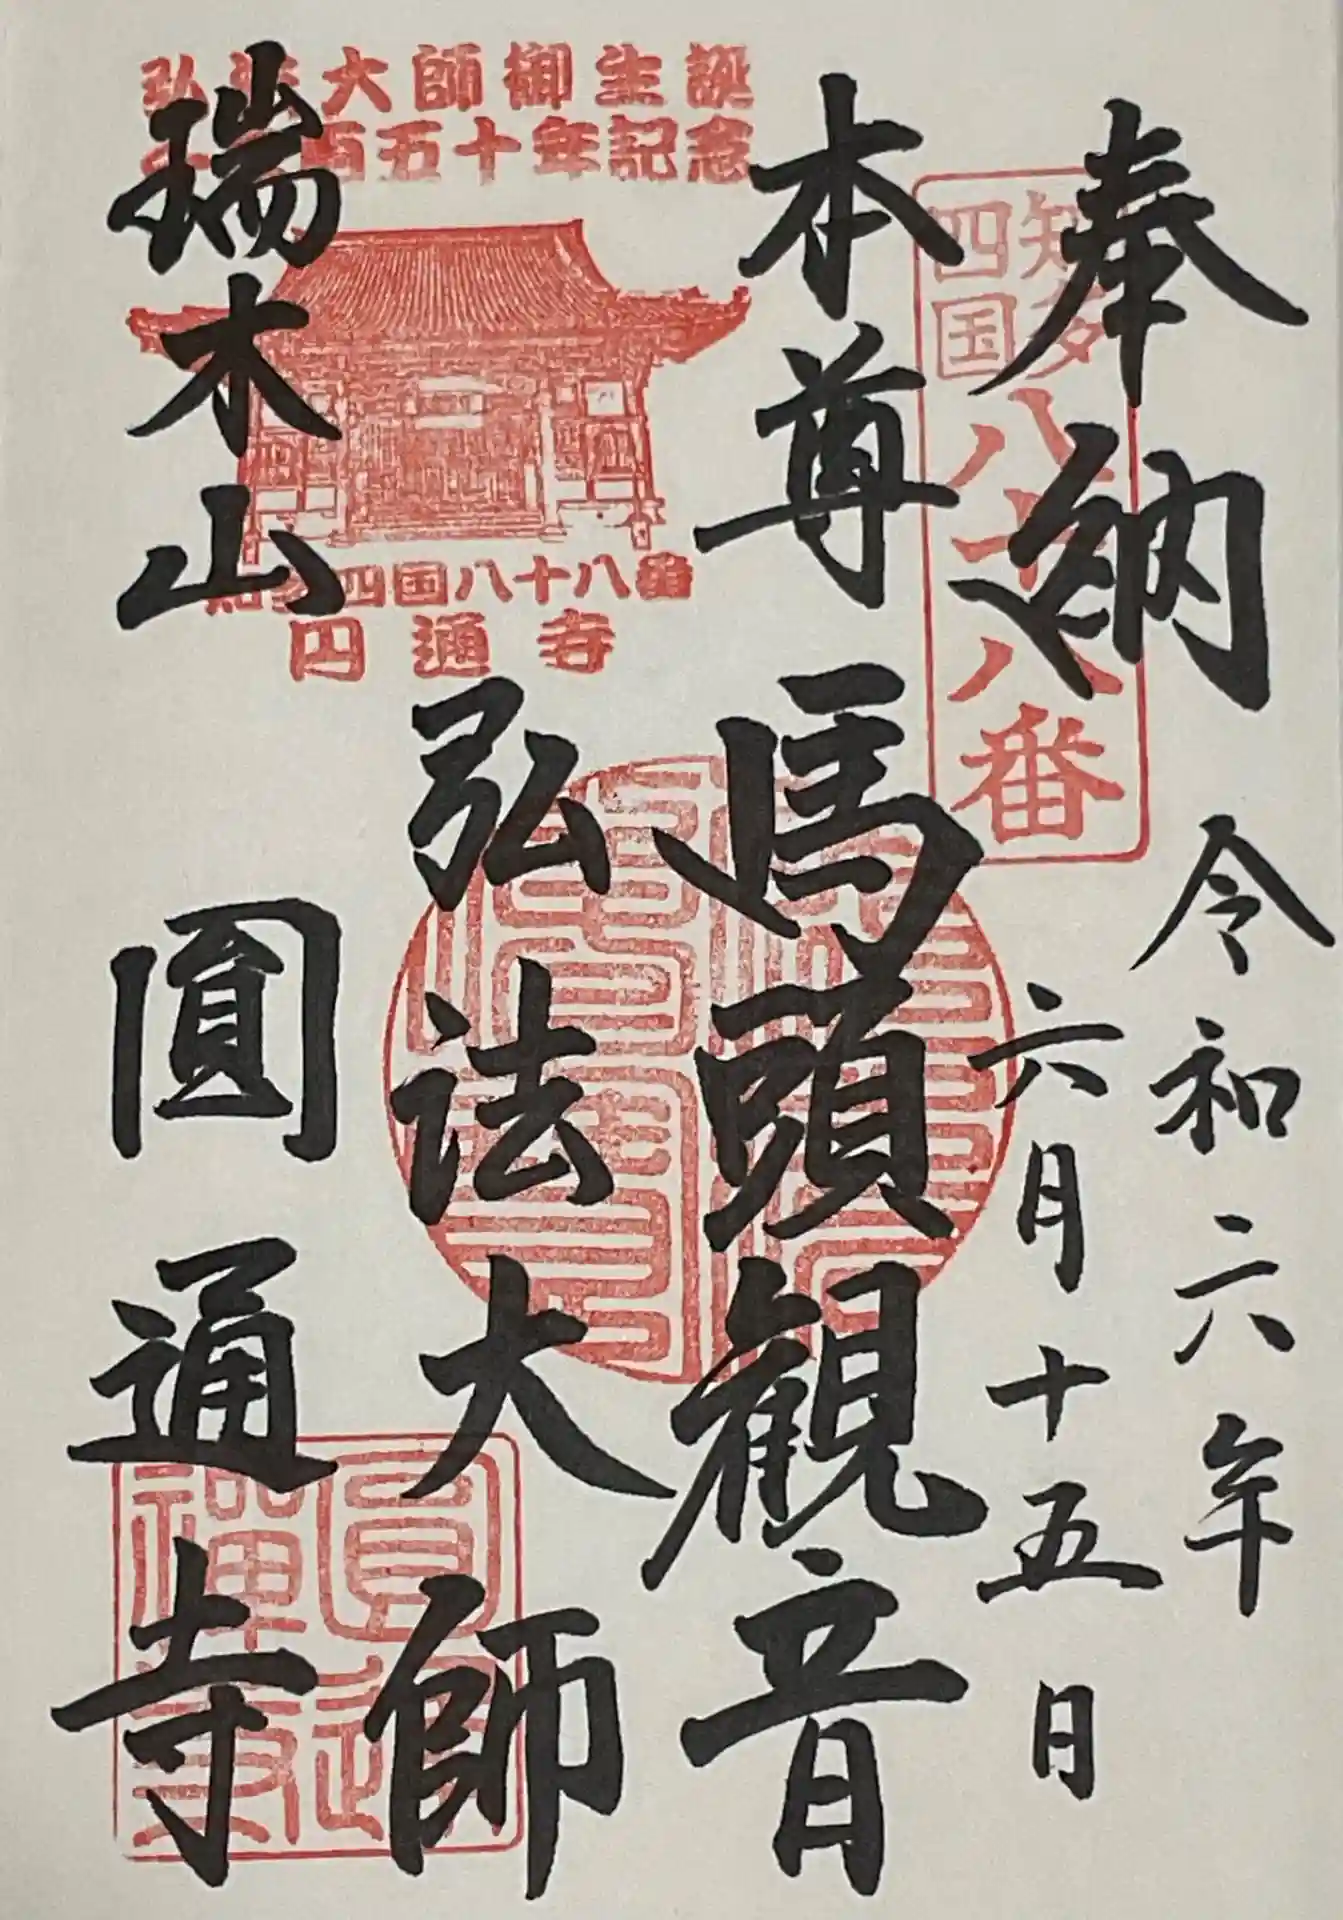 奉納
令和六年
六月十五日
本尊 馬頭観音
弘法大師
瑞木山 圓通寺
知多
四国
八十八番
弘法大師御生誕
百五十年記念
知多四国八十八番
円通寺